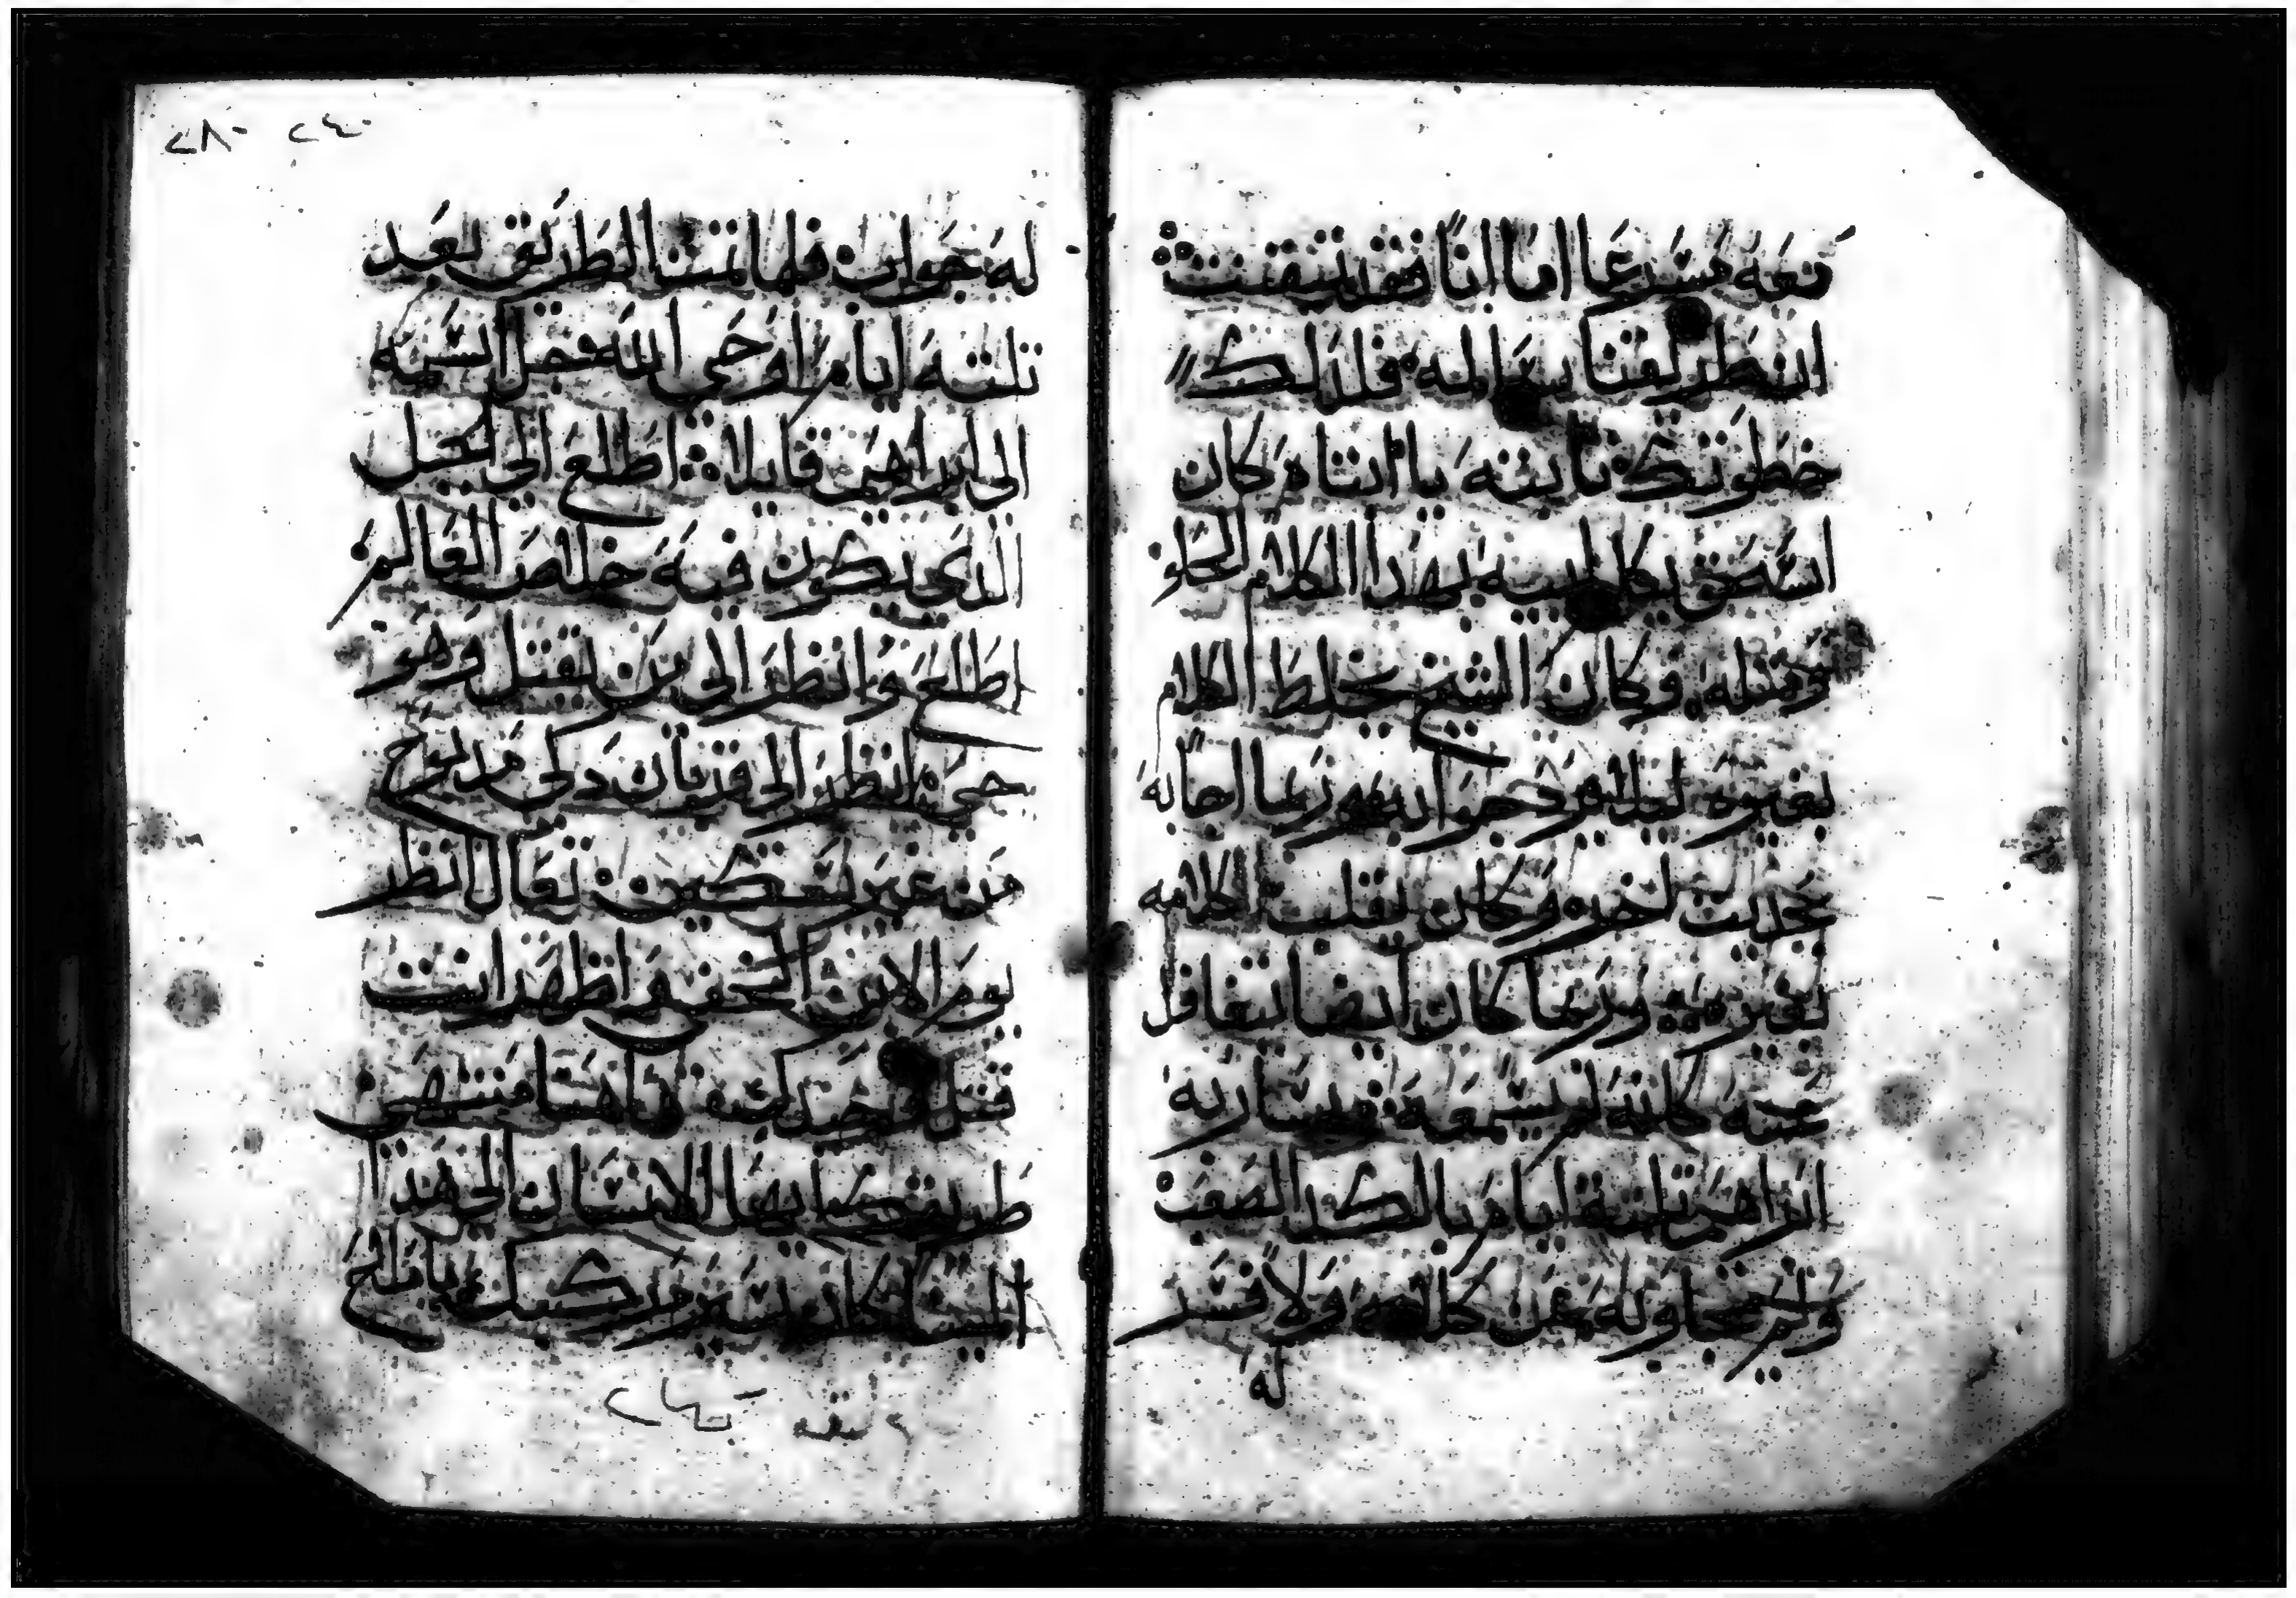 معه مسرعا اما انا فقد تيقنت
ان طريقنا سالمه فلذلك
خطوتك ثابته يا ابتاه كان
اسحق يكلم ابيه بهذا الكلام الحلو
ومثله وكان الشيخ يخلط الكلام
بغيره ليلا يرد جوابه وربما اجابه
بحديث اخر وكان يقلب الكلامه
بغيره وربما كان ايضا يتغافل
عنه كانه لم يسمعه فسار به
ابراهيم ثلثة ايام بالكد الصعب
ولم يجاوبه عن كلامه ولا فسر
له
له جواب فلما تمت الطريق بعد
ثلثة ايام اوحى الله فقبل اسمه
الى ابراهيم قايلا اطلع الى الجبل
الدي يكون فيه خلاص العالم
اطلع وانظر الى من يقتل وهو
حي انظر الى قربان دكي مدبوح
من غير سكين تعال انظر
يوم الابن الخفي اظهر انت
قتل وحيدك هاهنا منتهى
طريقك ايها الانسان الى هدا
المينا كان يسير مركبك يا ملاح